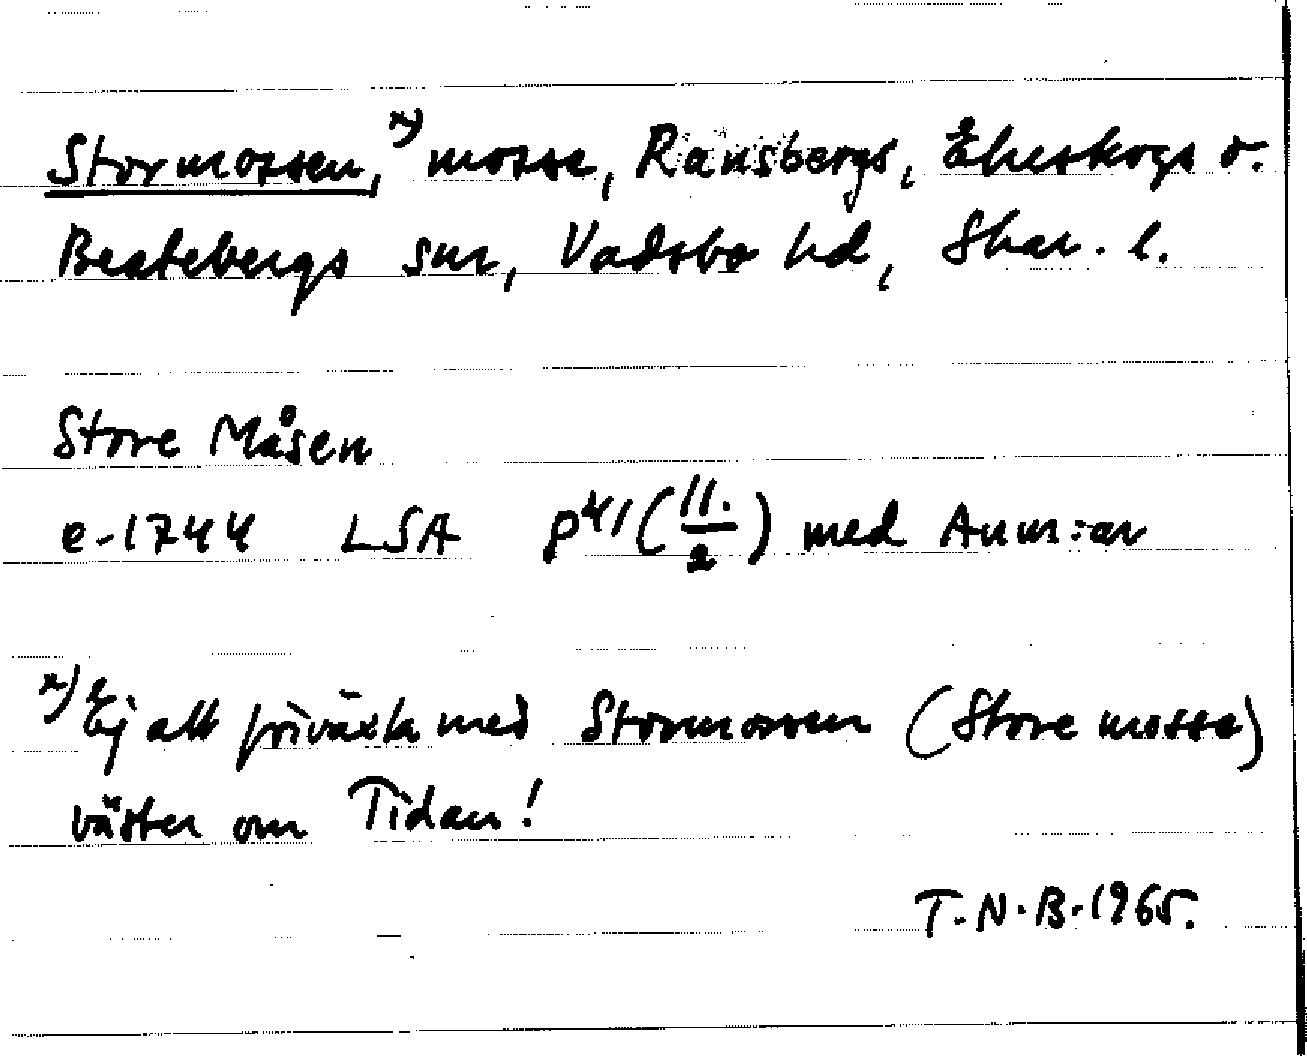 Stormossen,x) mosse, Ransbergs, Ekeskogs o.
Beatebergs snr, Vadsbo hd, Skar. l.
Store Måsen
e-1744 LSA P41(11./2) med Anm:ar
x) Ej att förväxla med Stormossen (Store mosse)
väster om Tidan!
T.N.B.1965.